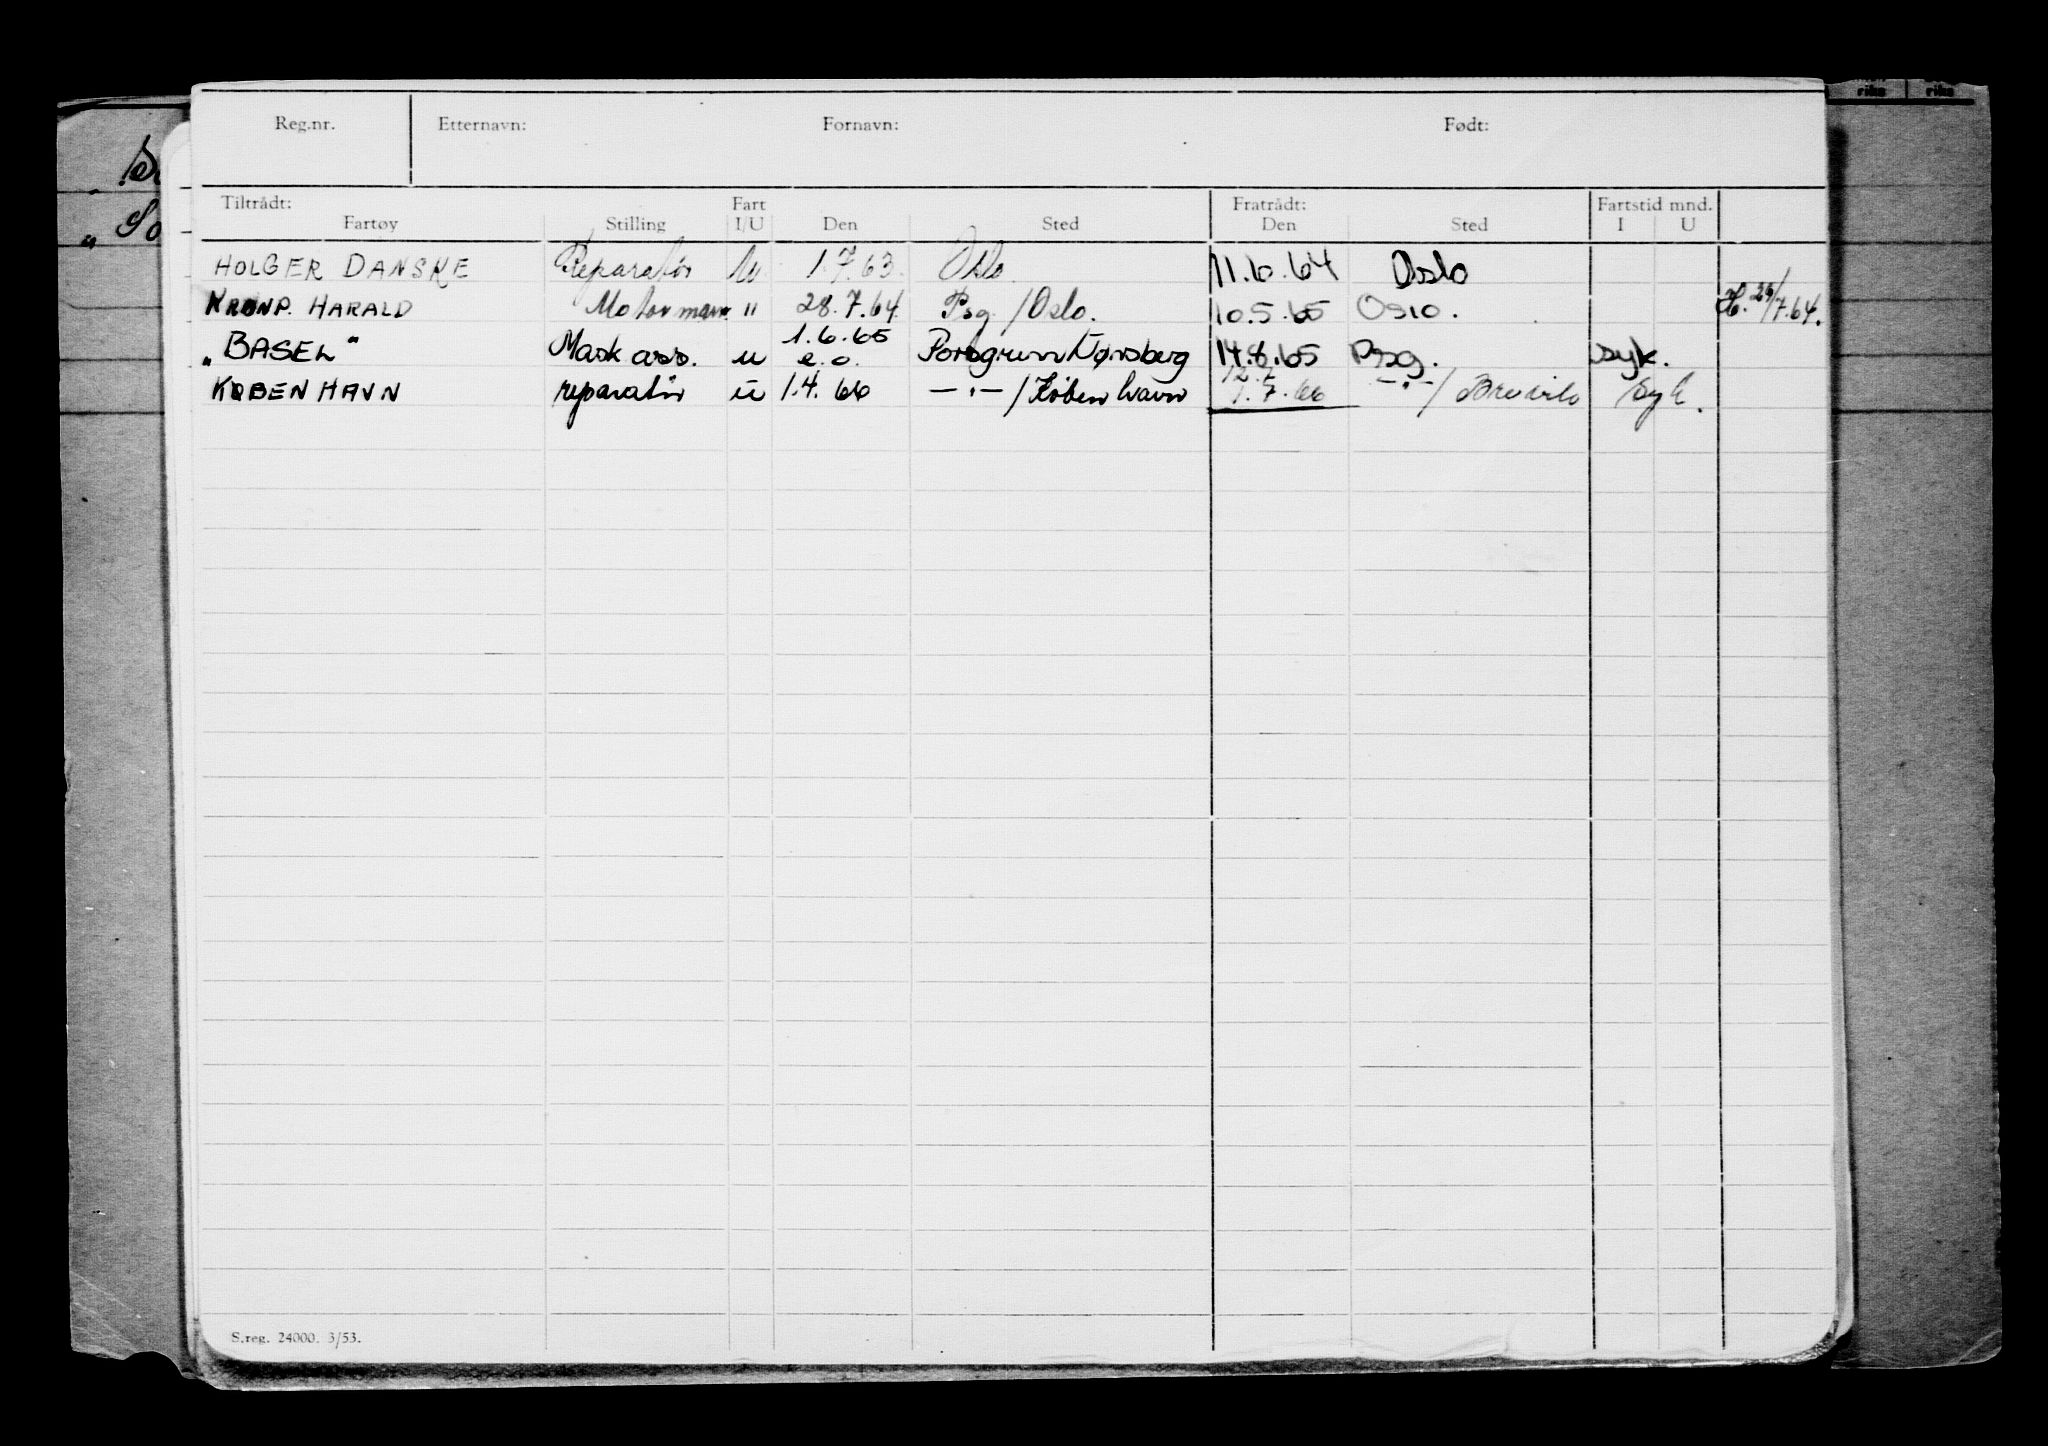 Reg.nr. Etternavn: Fornavn: Født:
Tiltrådt: Fart Fratrådt: Fartstid mnd.
Fartøy Stilling I/U Den Sted Den Sted I U
HOLGER DANSKE Reparatør U 1.7.63. Oslo 11.6.64 Oslo
KRONP. HARALD Motormann " 28.7.64 Psg/Oslo. 10.5.65 Oslo. 7.64.
"BASEL" Mask ass. u 1.6.65 e.o. Porsgrunn/Tønsberg 14.6.65 Psg. syk.
KØBENHAVN reparatør u 1.4.66 —.—/København 12.7 1.7.66 —.—/ syk.
S.reg. 24000. 3/53.
rike rike